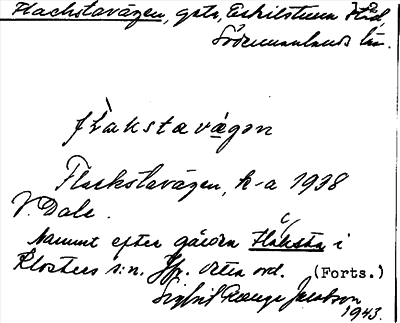 Flackstavägen, gata, Eskilstuna stad,
Södermanlands län.
flàkstavägen
Flackstavägen, k-a 1938
V. Dale.
Namnt efter gården Flaksta i
Klosters s:n. Jfr. detta ord. (Forts.)
Sigfrid Ränge Jacobson
1943.